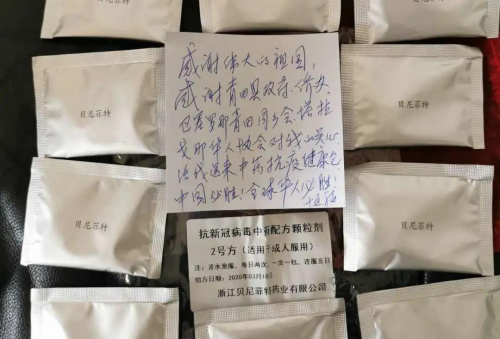 贝尼菲特
感谢伟大的祖国,
感谢青田县政府、侨办
巴塞罗那青田同乡会、塔拉
戈那华人协会对我的关心
给我送来中药抗疫健康包
中国必胜!全球华人必胜!
贝尼菲特
贝尼菲特
贝尼菲特
抗新冠病毒中药配方颗粒剂
2号方(适用于成人服用)
注:开水泡服,每日两次,一次一包,连服五日
方日期:2020年03月10日
浙江贝尼菲特药业有限公司